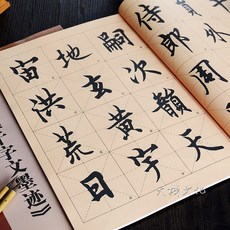 外
侍郎周
嗣次韻天
地玄黄宇
宙洪荒日
字文墨迹》